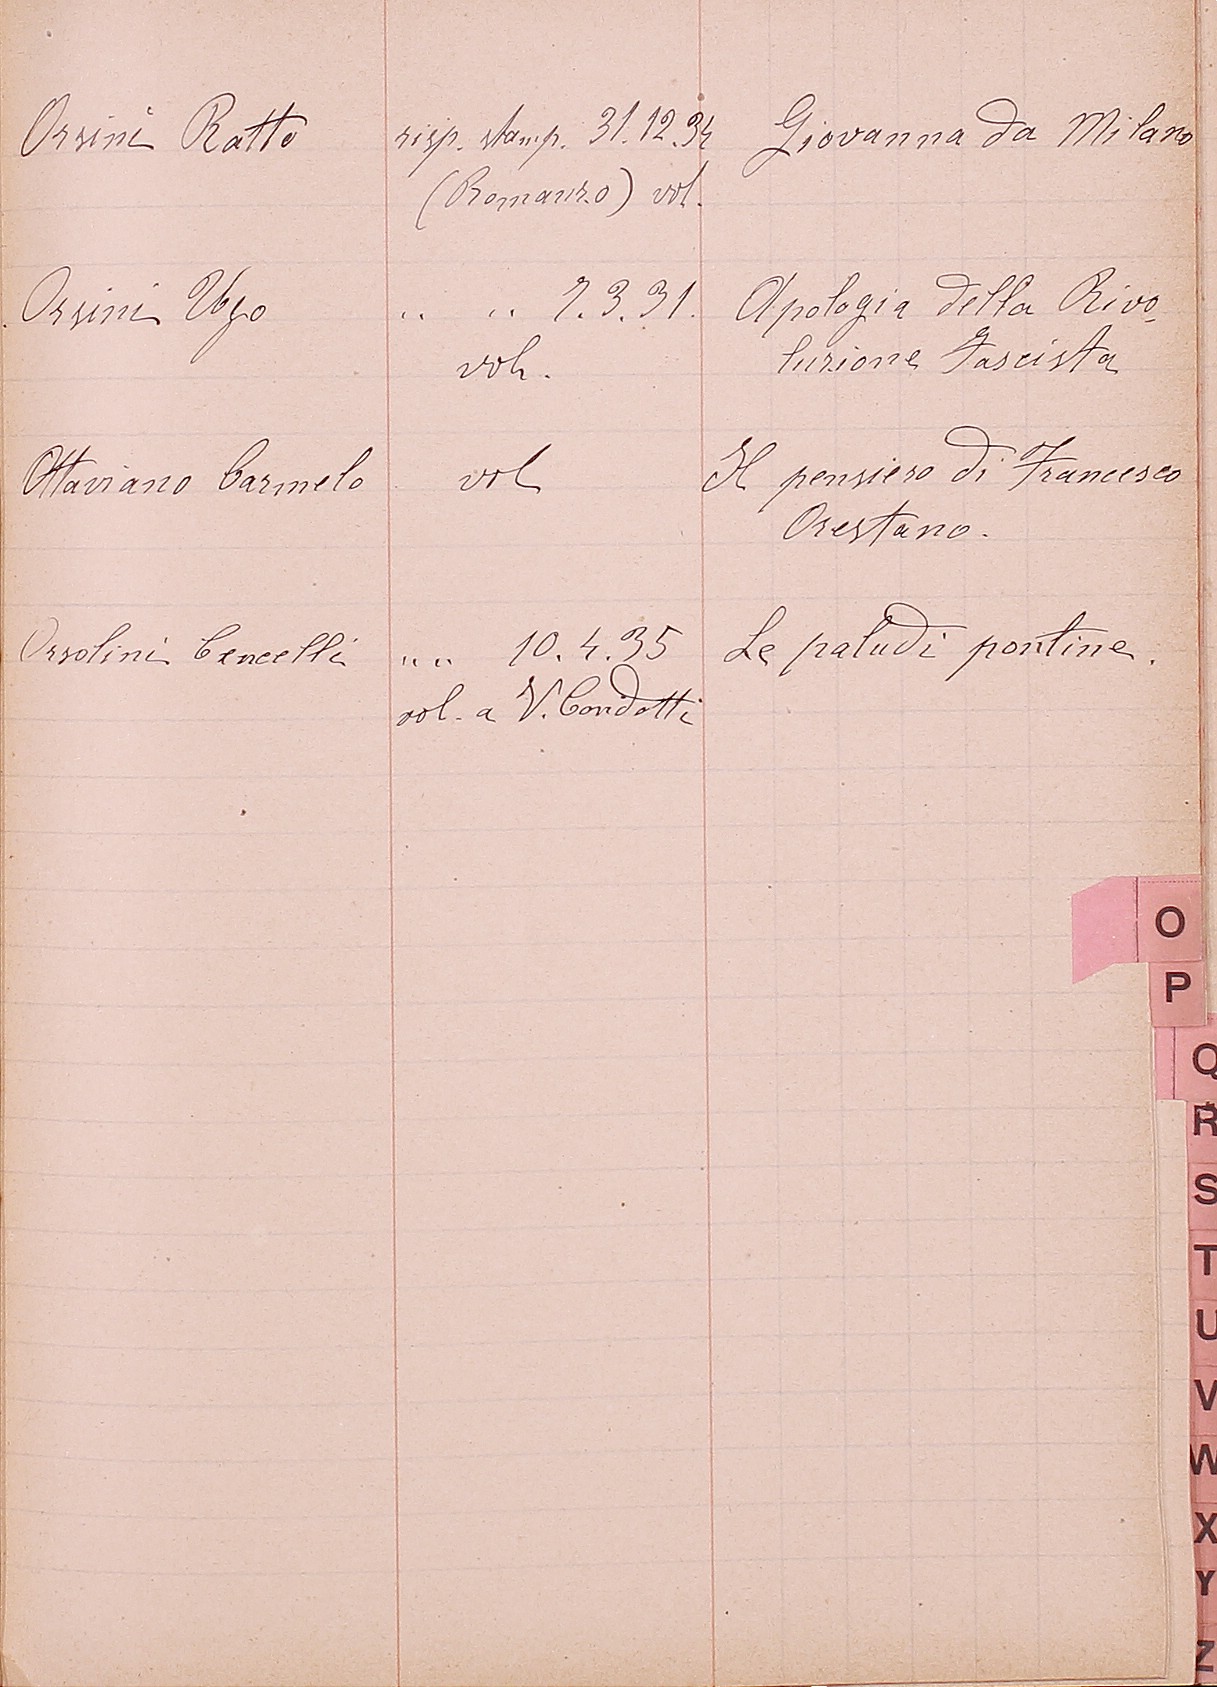 Orsini Ratto risp. stamp. 31.12.34 Giovanna da Milano
(Romanzo) vol.
Orsini Ugo " " 7.3.31. Apologia della Rivo-
vol. luzione Fascista
Ottaviano Carmelo vol Il pensiero di Francesco
Orestano.
Orsolini Cencelli " " 10.4.35 Le paludi pontine.
vol. a V. Condotti
O
P
Q
R
S
T
U
V
W
X
Y
Z